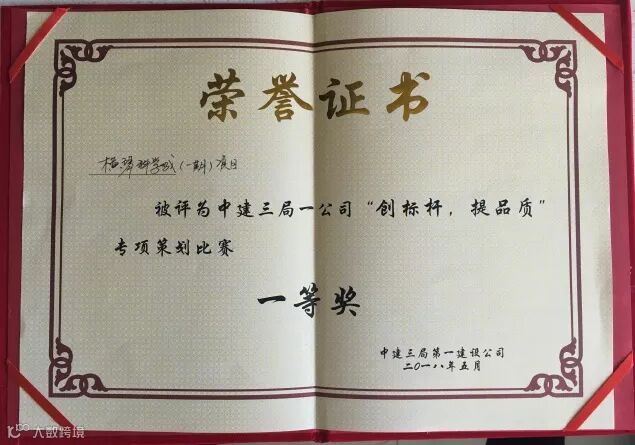 荣誉证书
横琴科学城(一期)项目
被评为中建三局一公司“创标杆，提品质”
专项策划比赛
一等奖
中建三局第一建设公司
二〇一八年五月
大数跨境